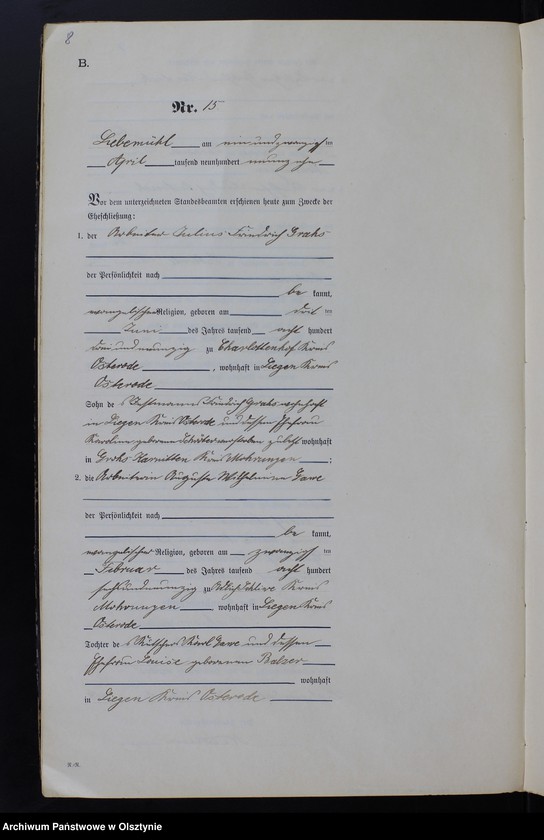 8
B.
Nr. 15
Liebemühl am einundzwanzig ten
April tausend neunhundert neunzehn
Vor dem unterzeichneten Standesbeamten erschienen heute zum Zwecke der
Eheschließung:
1. der Arbeiter Julius Friedrich Grahs
der Persönlichkeit nach
be kannt,
evangelischer Religion, geboren am drit ten
Juni des Jahres tausend acht hundert
drei und neunzig zu Charlottenhof Kreis
Osterode, wohnhaft in Liegen Kreis
Osterode
Sohn des Friedrich Grahs wohnhaft
in Liegen Kreis Osterode und dessen Ehefrau
Karoline geborenen verstorben zuletzt wohnhaft
in Groß Hermenau Kreis Mohrungen;
2. die Arbeiterin Auguste Wilhelmine Gawe
der Persönlichkeit nach
be kannt,
evangelischer Religion, geboren am zwanzigs ten
Februar des Jahres tausend acht hundert
sechsundneunzig zu Kreis
Mohrungen wohnhaft in Liegen Kreis
Osterode
Tochter des Kutschers Karl Gawe und dessen
Ehefrau Louise geborenen Balzer
wohnhaft
in Liegen Kreis Osterode
Archiwum Państwowe w Olsztynie